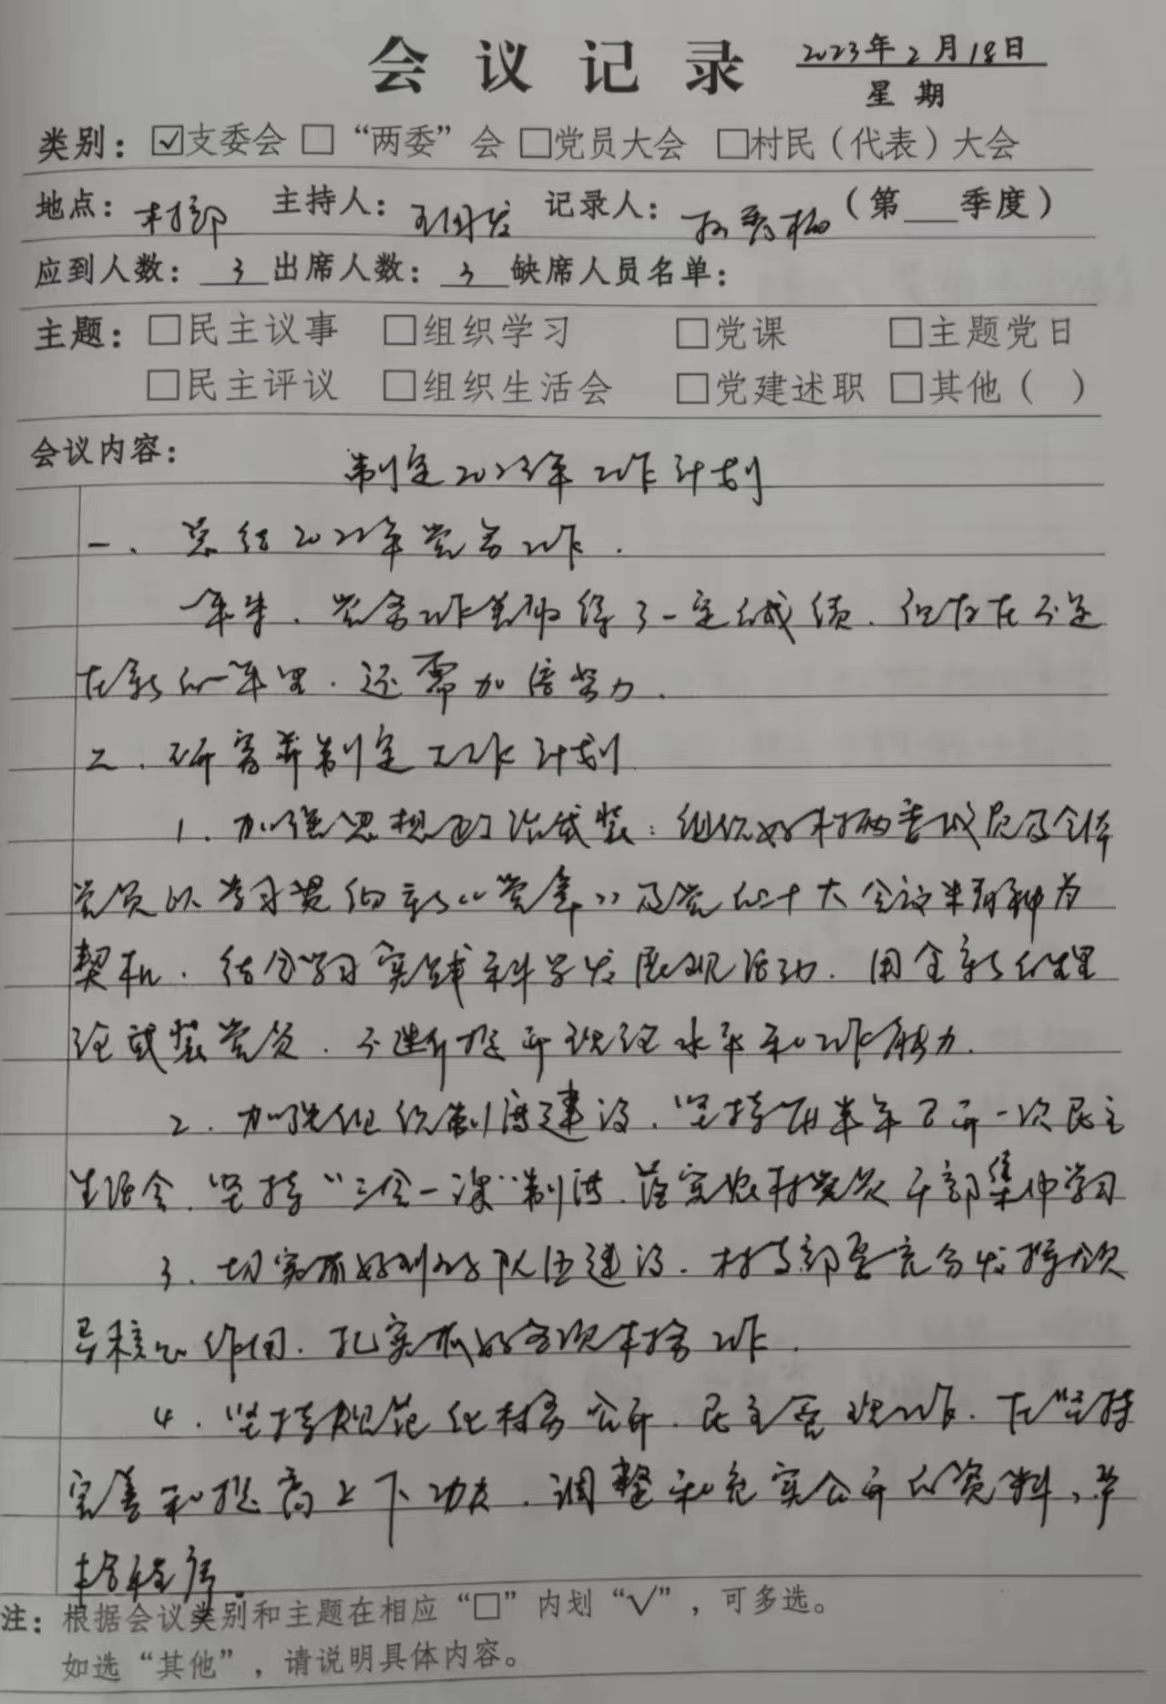 会议记录 2023年2月18日
星期
类别：☑支委会 □“两委”会 □党员大会 □村民（代表）大会
地点：村部 主持人：王国发 记录人：孙秀梅（第___季度）
应到人数：3 出席人数：3 缺席人员名单：
主题：□民主议事 □组织学习 □党课 □主题党日
□民主评议 □组织生活会 □党建述职 □其他（ ）
会议内容：
制定2023年工作计划
一、总结2022年党务工作.
一年来、党务工作虽取得了一定的成绩、但存在不足
在新的一年里、还需加倍努力.
二、研究并制定工作计划
1、加强思想政治武装：组织好村两委成员及全体
党员以学习贯彻新“党章”及党的二十大会议精神为
契机、结合学习实践科学发展观活动、用全新的理
论武装党员、不断提升理论水平和工作能力.
2、加强组织制度建设、坚持每半年召开一次民主
生活会、坚持“三会一课”制度、落实农村党员干部集中学习
3、切实抓好班子队伍建设、村支部要充分发挥领
导核心作用、扎实抓好各项本村工作.
4、坚持规范化村务公开、民主管理工作、在坚持
完善和提高上下功夫、调整和充实公开的资料、严
格程序.
注：根据会议类别和主题在相应“□”内划“√”，可多选。
如选“其他”，请说明具体内容。